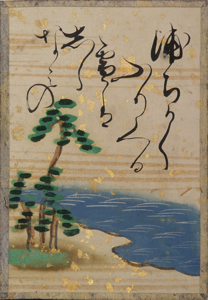 浦ちかく
ふりくる
雪は
しら
なみの